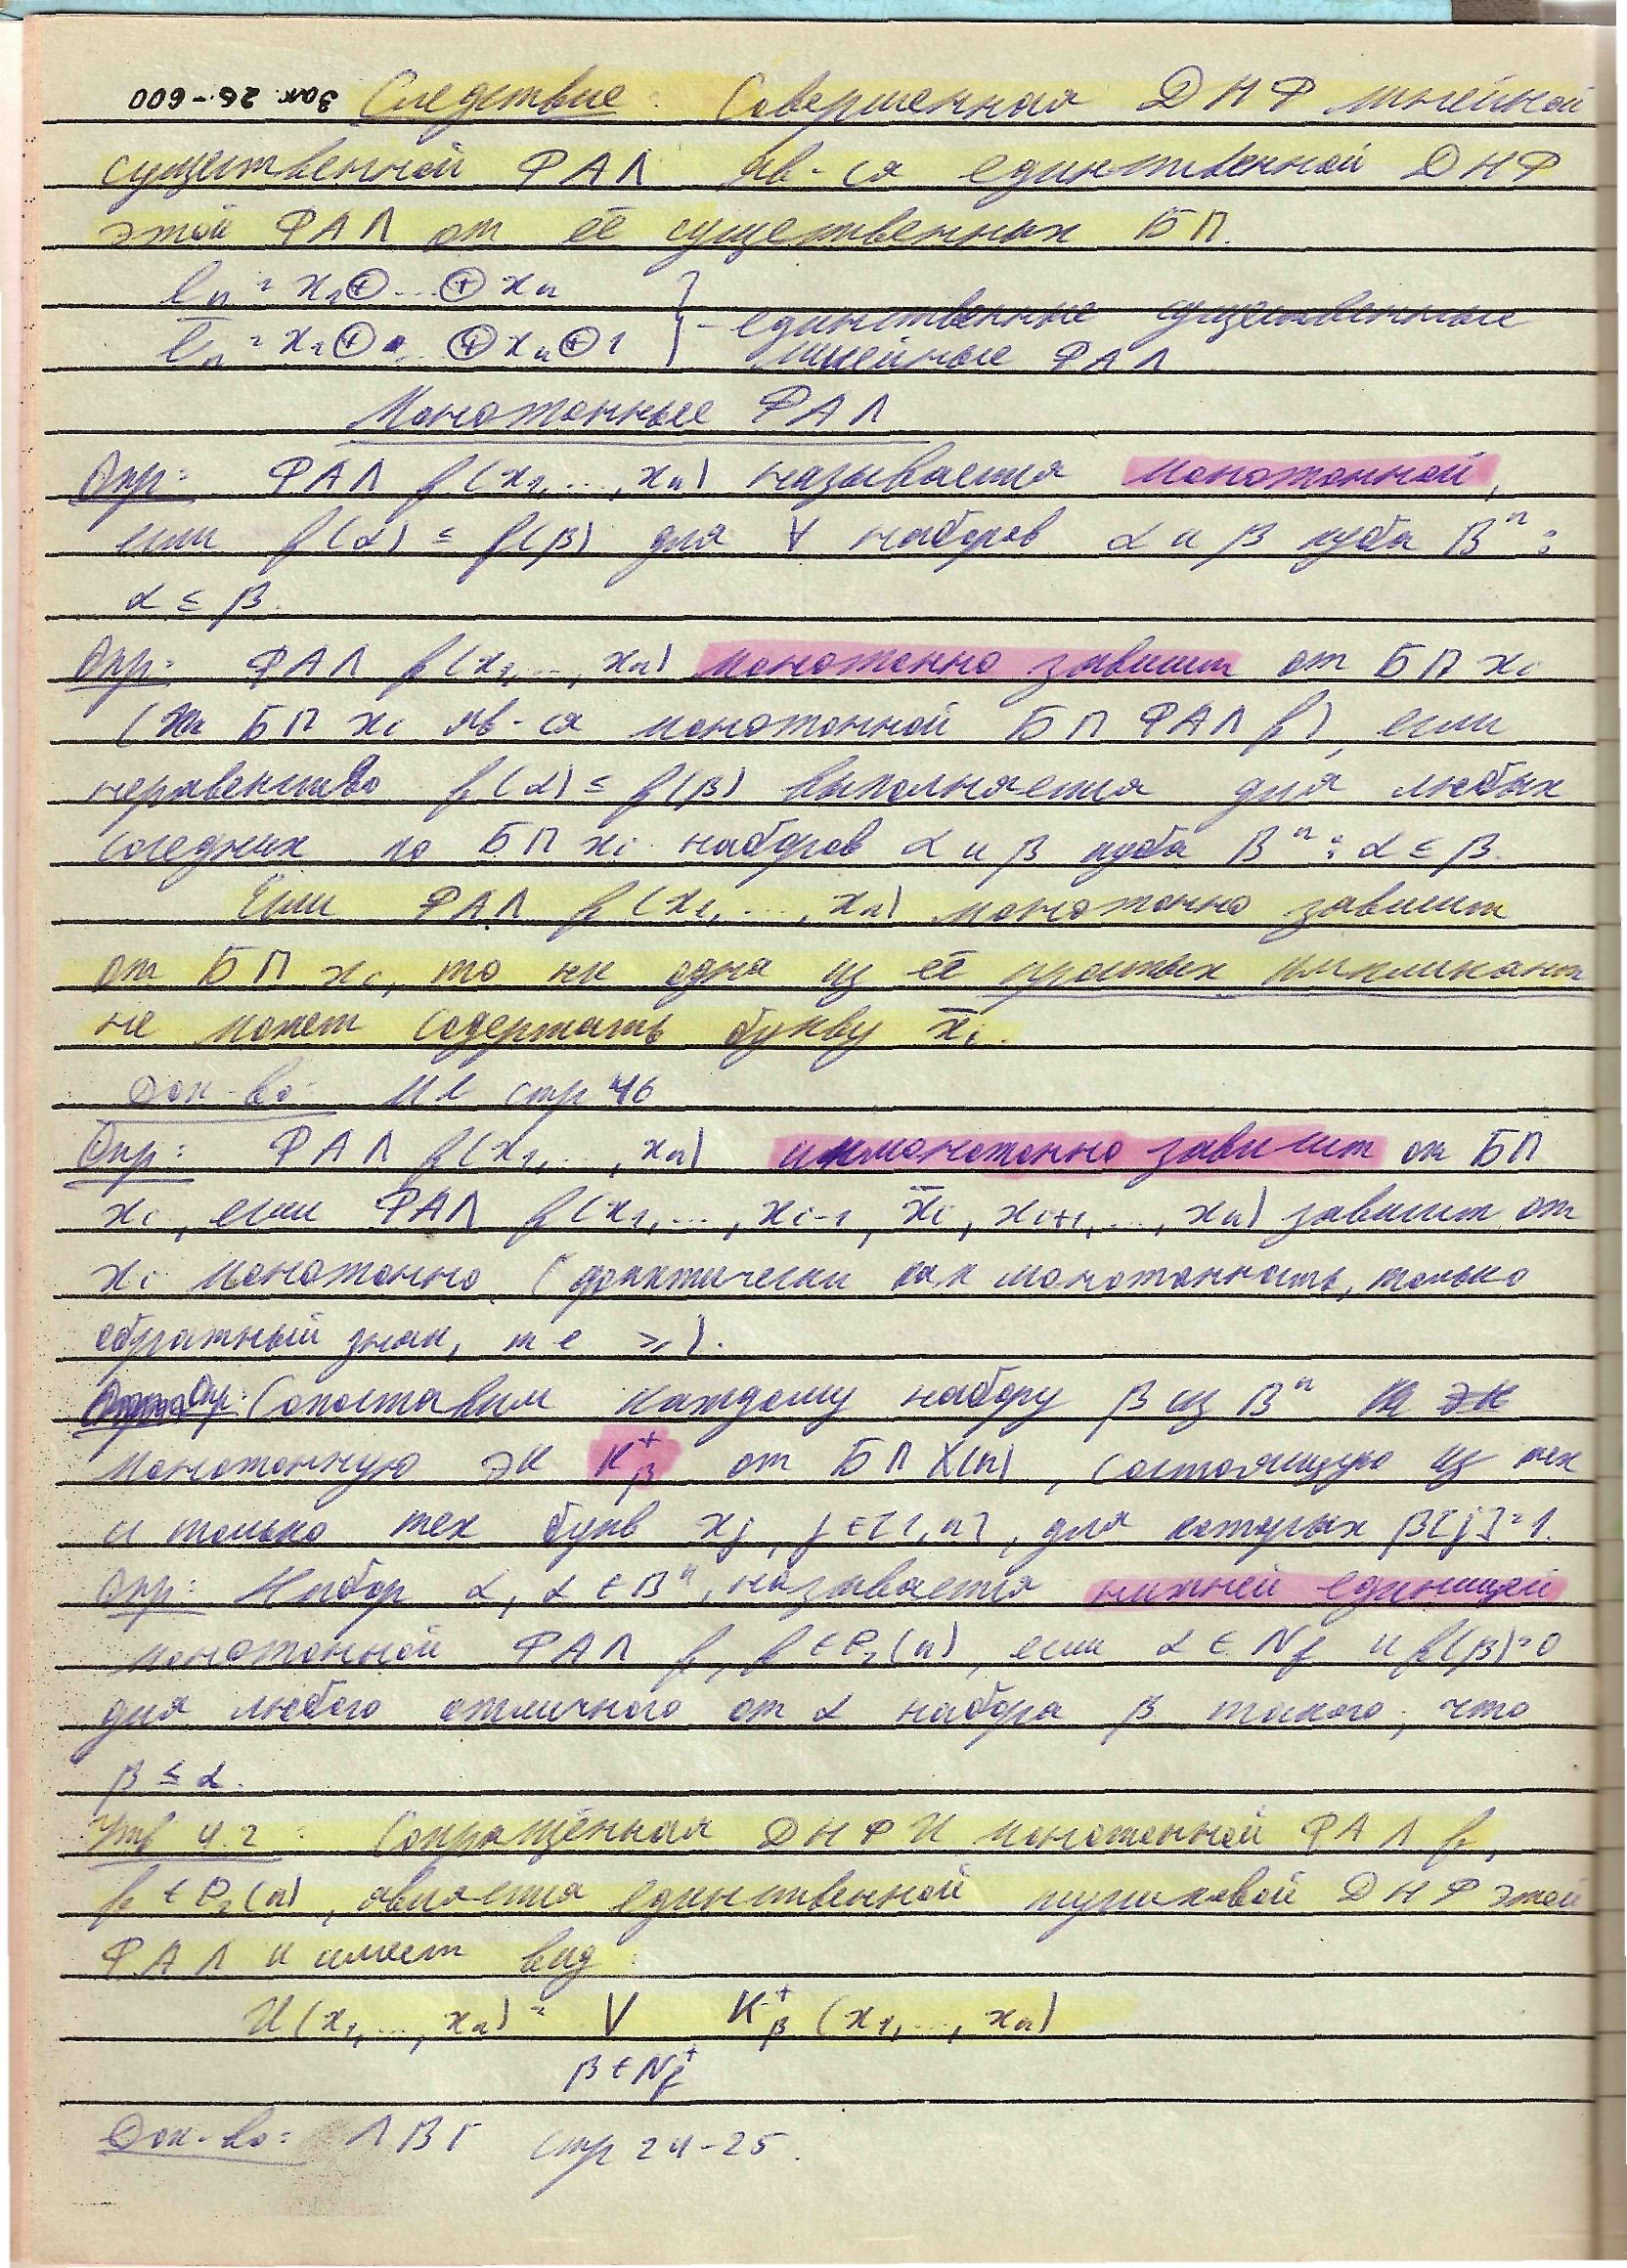 Зак. 26-600
Следствие: Совершенная ДНФ линейной
существенной ФАЛ яв-ся единственной ДНФ
этой ФАЛ от её существенных БП.
lₙ = x₁⊕...⊕xₙ
l̄ₙ = x₁⊕...⊕xₙ⊕1 } - единственные существенные
линейные ФАЛ
Монотонные ФАЛ
Опр: ФАЛ f(x₁,...,xₙ) называется монотонной,
если f(α) ≤ f(β) для ∀ наборов α и β куба Bⁿ:
α ≤ β.
Опр: ФАЛ f(x₁,...,xₙ) монотонно зависит от БП xᵢ
(или БП xᵢ яв-ся монотонной БП ФАЛ f), если
неравенство f(α) ≤ f(β) выполняется для любых
соседних по БП xᵢ наборов α и β куба Bⁿ: α ≤ β.
Если ФАЛ f(x₁,...,xₙ) монотонно зависит
от БП xᵢ, то ни одна из её простых импликант
не может содержать букву x̄ᵢ.
Док-во: стр 46
Опр: ФАЛ f(x₁,...,xₙ) инмонотонно зависит от БП
xᵢ, если ФАЛ f(x₁,...,xᵢ₋₁, x̄ᵢ, xᵢ₊₁,...,xₙ) зависит от
xᵢ монотонно. (фактически как монотонность, только
обратный знак, т е ≥).
Опр: Сопоставим каждому набору β из Bⁿ ЭК
монотонную ЭК K⁺β от БП X(n), состоящую из тех
и только тех букв xⱼ, j ∈ [1,n], для которых β[j]=1.
Опр: Набор α, α ∈ Bⁿ, называется нижней единицей
монотонной ФАЛ f, f ∈ P₂(n), если α ∈ Nf и f(β)=0
для любого отличного от α набора β такого, что
β ≤ α.
Утв 4.2: Сокращённая ДНФ U монотонной ФАЛ f,
f ∈ P₂(n), является единственной тупиковой ДНФ этой
ФАЛ и имеет вид:
U(x₁,...,xₙ) = ⋁ K⁺β (x₁,...,xₙ)
β ∈ N⁺f
Док-во: ЛВГ стр 24-25.